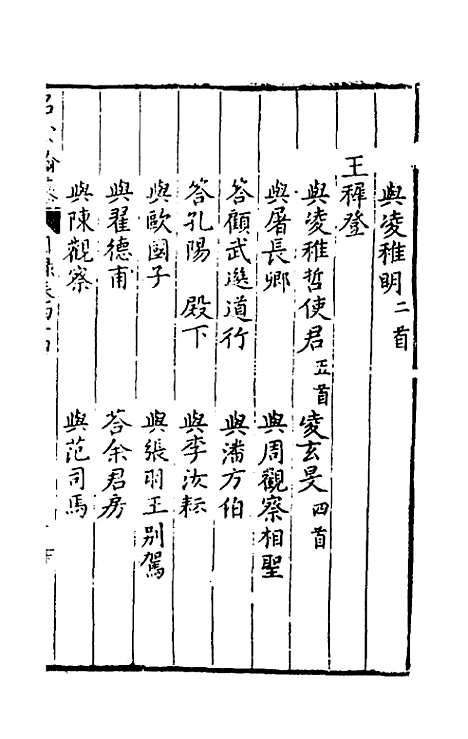 與凌稚明二首
王穉登
與凌稚哲使君五首 凌玄旻四首
與屠長卿 與周觀察相聖
答顧武選道行 與潘方伯
答孔陽 殿下 與李汝耘
與歐國子 與張羽王別駕
與翟德甫 答余君房
與陳觀察 與范司馬